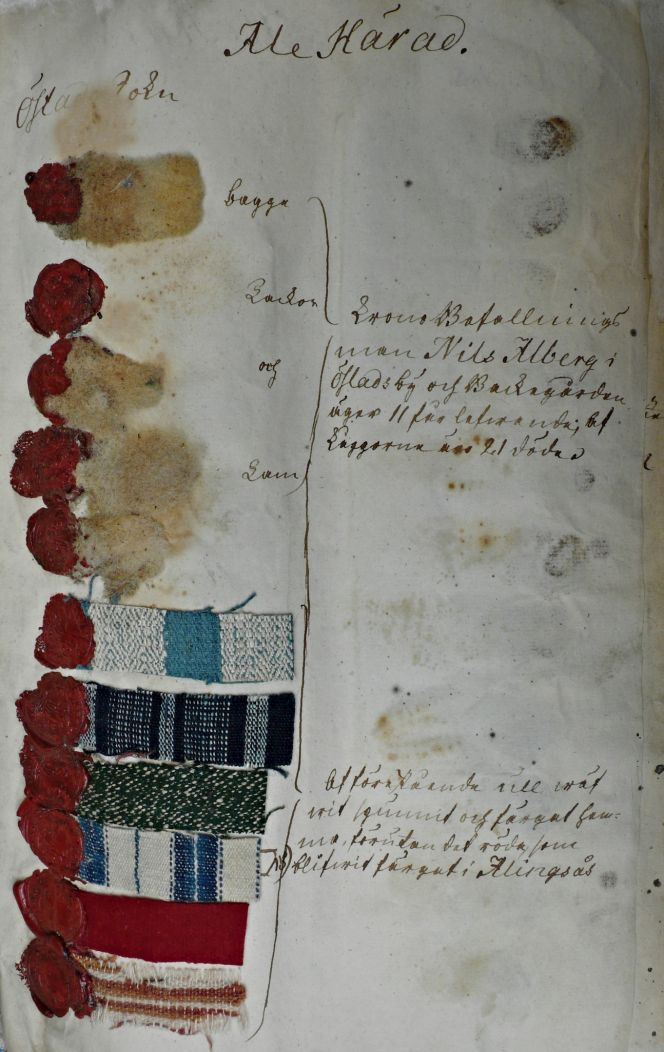 Ale Härad.
Östad Sokn
bagge
Tackor
och
Lam
Krono Befallnings
man Nils Alberg i
Östadsby och Backegården
äger 11 får lefwande; af
är 21 döde
Af förestående ull wäf
wit spunnit och färgat hem-
ma, förutan det röda som
blifwit färgat i Alingsås